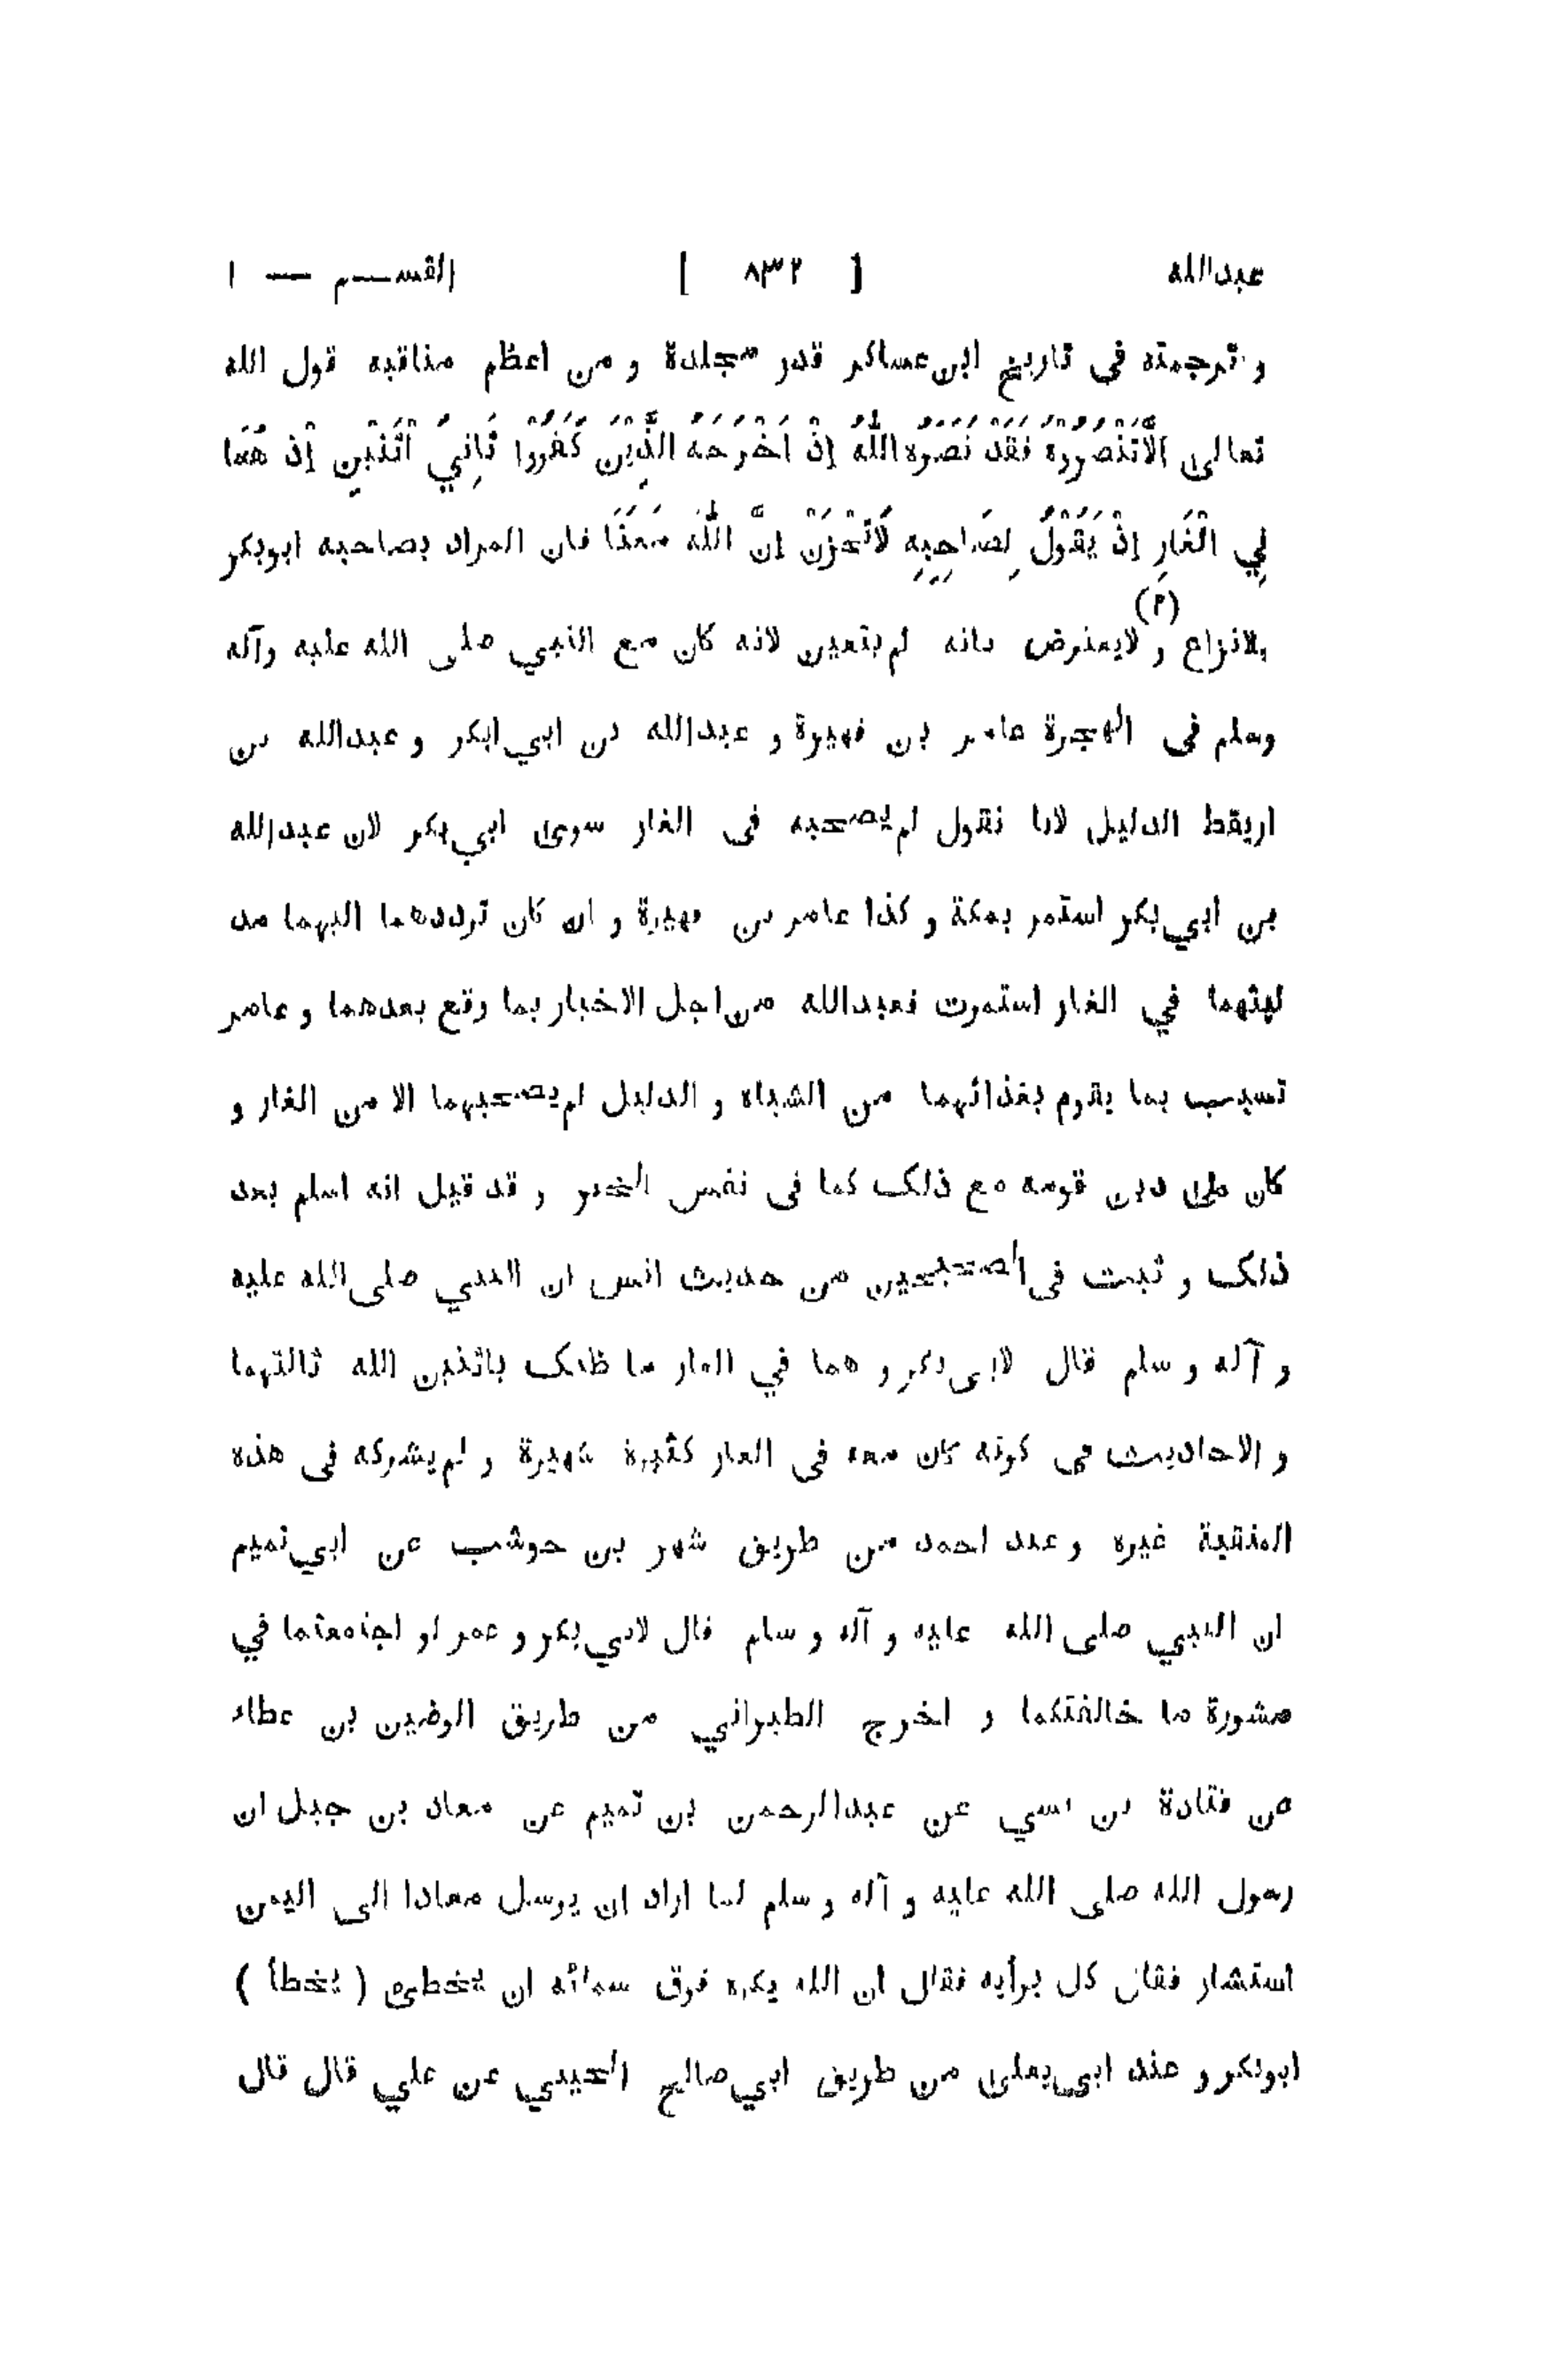 عبدالله [ ٨٣٢ ] القســم — ١
و ترجمته فى تاريخ ابن عساكر قدر مجلدة و من اعظم مناقبه قول الله
تعالى اِلَّا تَنْصُرُوْهُ فَقَدْ نَصَرَهُ اللّٰهُ اِذْ اَخْرَجَهُ الَّذِيْنَ كَفَرُوْا ثَانِيَ اثْنَيْنِ اِذْ هُمَا
فِي الْغَارِ اِذْ يَقُوْلُ لِصَاحِبِهِ لَاتَحْزَنْ اِنَّ اللّٰهَ مَعَنَا فان المراد بصاحبه ابوبكر
بلانزاع و(٢) لايعترض بانه لم يتعين لانه كان مع النبي صلى الله عليه وآله
وسلم فى الهجرة عامر بن فهيرة و عبدالله بن ابي ابكر و عبدالله بن
اريقط الدليل لانا نقول لم يصحبه فى الغار سوى ابي بكر لان عبدالله
بن ابي بكر استمر بمكة و كذا عامر بن فهيرة و ان كان ترددهما اليهما مد
لبثهما في الغار استمرت فعبدالله من اجل الاخبار بما وقع بعدهما و عامر
تسبب بما يقوم بغذائهما من الشياه و الدليل لم يصحبهما الا من الغار و
كان على دين قومه مع ذلك كما فى نفس الخبر و قد قيل انه اسلم بعد
ذلك و ثبت فى الصحيحين من حديث انس ان النبي صلى الله عليه
و آله و سلم قال لابى بكر و هما في الغار ما ظنك باثنين الله ثالثهما
و الاحاديث فى كونه كان معه فى الغار كثيرة شهيرة و لم يشركه فى هذه
المنقبة غيره و عند احمد من طريق شهر بن حوشب عن ابي تميم
ان النبي صلى الله عليه و آله و سلم قال لابي بكر و عمر لو اجتمعتما في
مشورة ما خالفتكما و اخرج الطبراني من طريق الوضين بن عطاء
عن قتادة بن نسي عن عبدالرحمن بن تميم عن معاذ بن جبل ان
رسول الله صلى الله عليه و آله و سلم لما اراد ان يرسل معاذا الى اليمن
استشار فقال كل برأيه فقال ان الله يكره فوق سمائه ان يخطئ ( يخطأ )
ابوبكر و عند ابى يعلى من طريق ابي صالح الحنفي عن علي قال قال